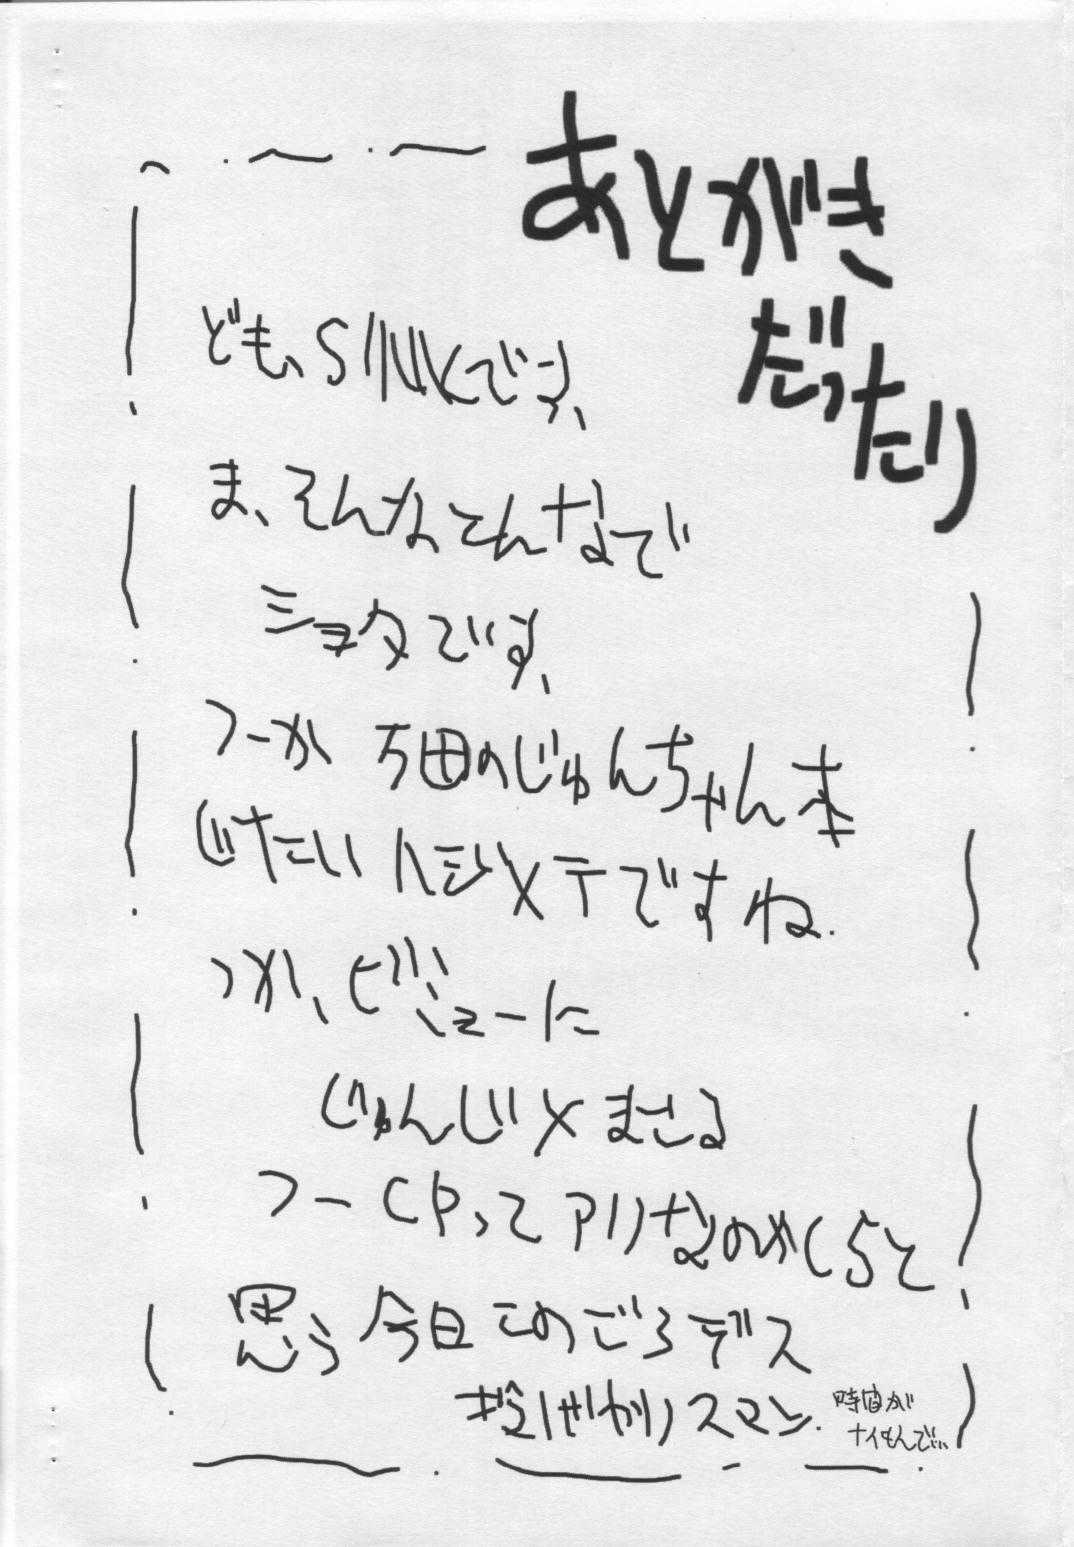 あとがき
だったり
ども、SINKです、
ま、そんなこんなで
ショタです、
つーか 万田のじゅんちゃん本
じたいハジメテですね.
つか、ビジュ−に
じゅんじ×まさる
つーCPってアリなのかしらと
思う今日このごろデス
スマン.
時間が
ナイもんで…